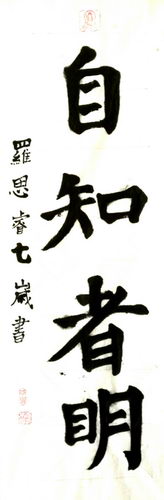 自知者明
羅思睿七歲書